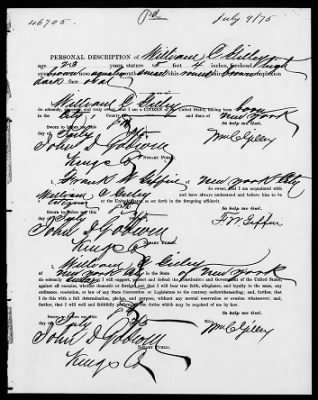 46705.
July 9/75
PERSONAL DESCRIPTION of William C
age 23 years, stature feet 4 inches, forehead
eyes brown nose mouth chin hair brown complexion
dark face oval
William C
do solemnly swear that I am a CITIZEN of the United States, having been born
in the City County and State of New York
So help me God.
Sworn to before me this
day of July
John D Godwin
Kings Co
NOTARY PUBLIC.
Wm C
I, Frank W of New York City
do swear, that I am acquainted with
William C and have always understood and believe him to be
a citizen of the United States as set forth in the foregoing affidavit.
So help me God.
Sworn to before me this
day of July
John D Godwin
Kings Co
NOTARY PUBLIC.
F W
I, William C
of New York City in the State of New York
do solemnly swear that I will support, protect and defend the Constitution and Government of the United States
against all enemies, whether domestic or foreign; and that I will bear true faith, allegiance, and loyalty to the same, any
ordinance, resolution, or law of any State Convention or Legislature to the contrary notwithstanding; and, further, that
I do this with a full determination, pledge, and purpose, without any mental reservation or evasion whatsoever; and,
further, that I will well and faithfully perform all the duties which may be required of me by law.
So help me God.
Sworn to before me this
day of July
John D Godwin
Kings Co
NOTARY PUBLIC.
Wm C